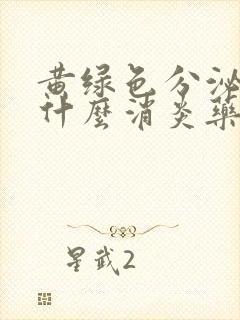 黄绿色分泌
什麼消炎藥
星武2